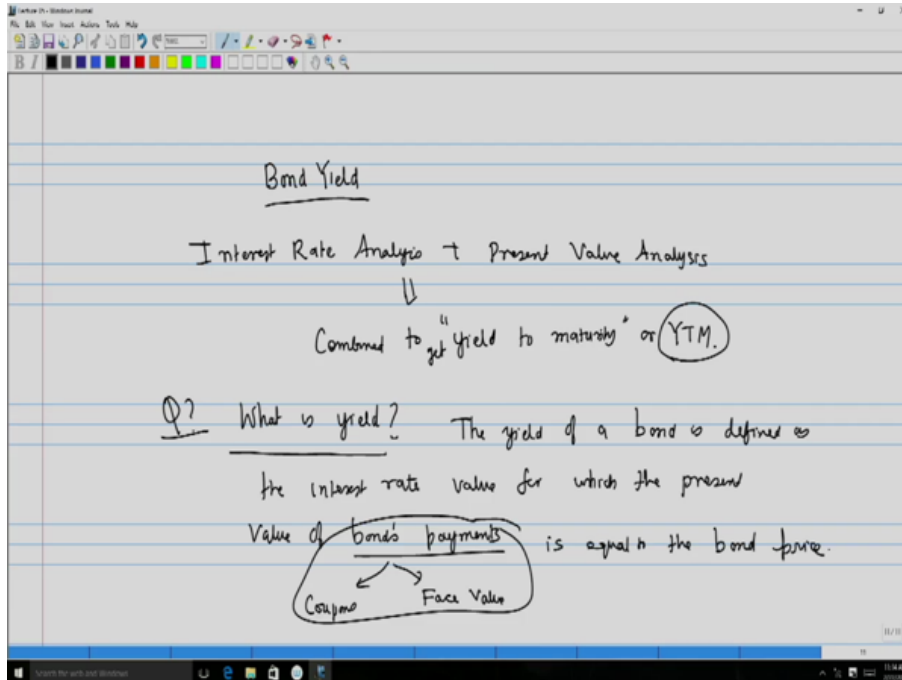 Lecture 01 - Windows Journal
File Edit View Insert Actions Tools Help
B I
Bond Yield
Interest Rate Analysis + Present Value Analysis
⇓
Combined to get "yield to maturity" or YTM.
Q? What is yield? The yield of a bond is defined as
the interest rate value for which the present
Value of bond's payments is equal to the bond price.
Coupons Face Value
11/11
Search the web and Windows